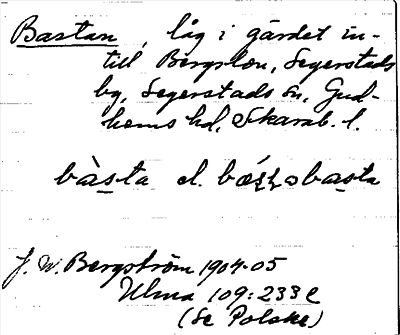 Bastan, låg i gärdet in-
till Bergslon, Segerstads
by, Segerstads sn, Gud-
hems hd, Skarab. l.
bàsta el.
J. W. Bergström 1904-05
Ulma 109:233 C
(Se Polske)